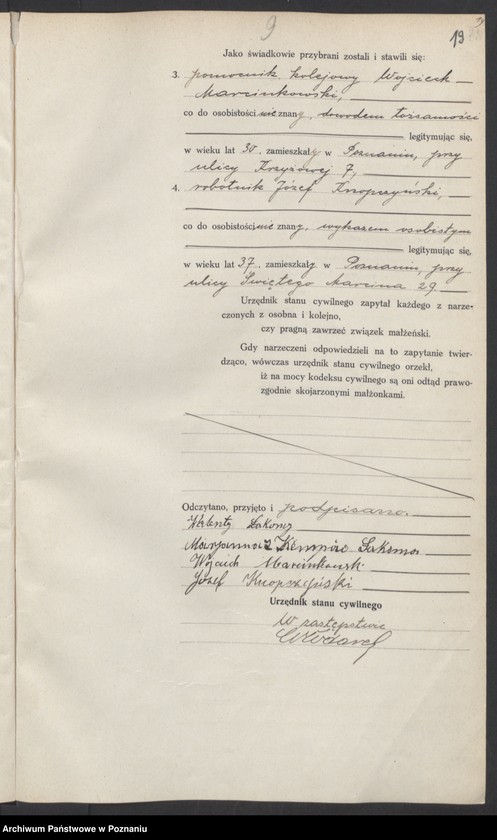 9
19
Jako świadkowie przybrani zostali i stawili się:
3. pomocnik kolejowy Wojciech
Marcinkowski,
co do osobistości nie znany, dowodem tożsamości
legitymując się,
w wieku lat 30, zamieszkały w Poznaniu, przy
ulicy Krzyżowej 7,
4. robotnik Józef Knopczyński,
co do osobistości nie znany, wykazem osobistym
legitymując się,
w wieku lat 37, zamieszkały w Poznaniu, przy
ulicy Świętego Marcina 29.
Urzędnik stanu cywilnego zapytał każdego z narze-
czonych z osobna i kolejno,
czy pragną zawrzeć związek małżeński.
Gdy narzeczeni odpowiedzieli na to zapytanie twier-
dząco, wówczas urzędnik stanu cywilnego orzekł,
iż na mocy kodeksu cywilnego są oni odtąd prawo-
zgodnie skojarzonymi małżonkami.
Odczytano, przyjęto i podpisano.
Walenty
Maryanna z
Wojciech Marcinkowski
Józef
Urzędnik stanu cywilnego
W zastępstwie
Archiwum Państwowe w Poznaniu